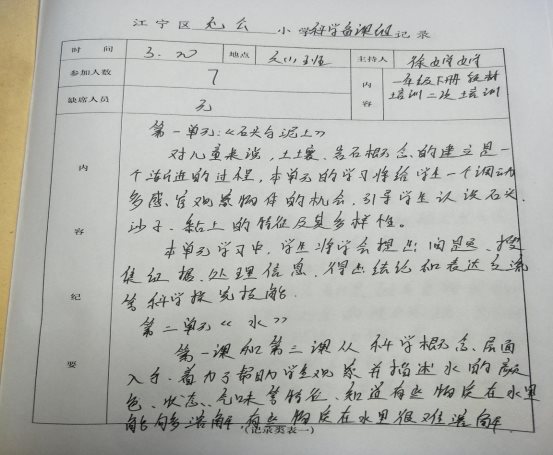 江宁区 尤公 小学科学备课组记录
时间 3.20 地点 主持人 徐
参加人数 7 内容 一年级下册教材
培训二次培训
缺席人员 无
内容纪要
第一单元:《石头与泥土》
对儿童来说,土壤、岩石概念的建立是一
个渐近的过程,本单元的学习将给学生一个调动
多感官观察物体的机会,引导学生认识石头、
沙子、黏土的特征及其多样性。
本单元学习中,学生将学会提出问题、搜
集证据、处理信息、得出结论和表达交流
等科学探究技能。
第二单元《水》
第一课和第三课从科学概念层面
入手,着力于帮助学生观察并描述水的颜
色、状态、气味等特征,知道有些物质在水里
能够多溶解,有些物质在水里很难溶解
(记录类表一)